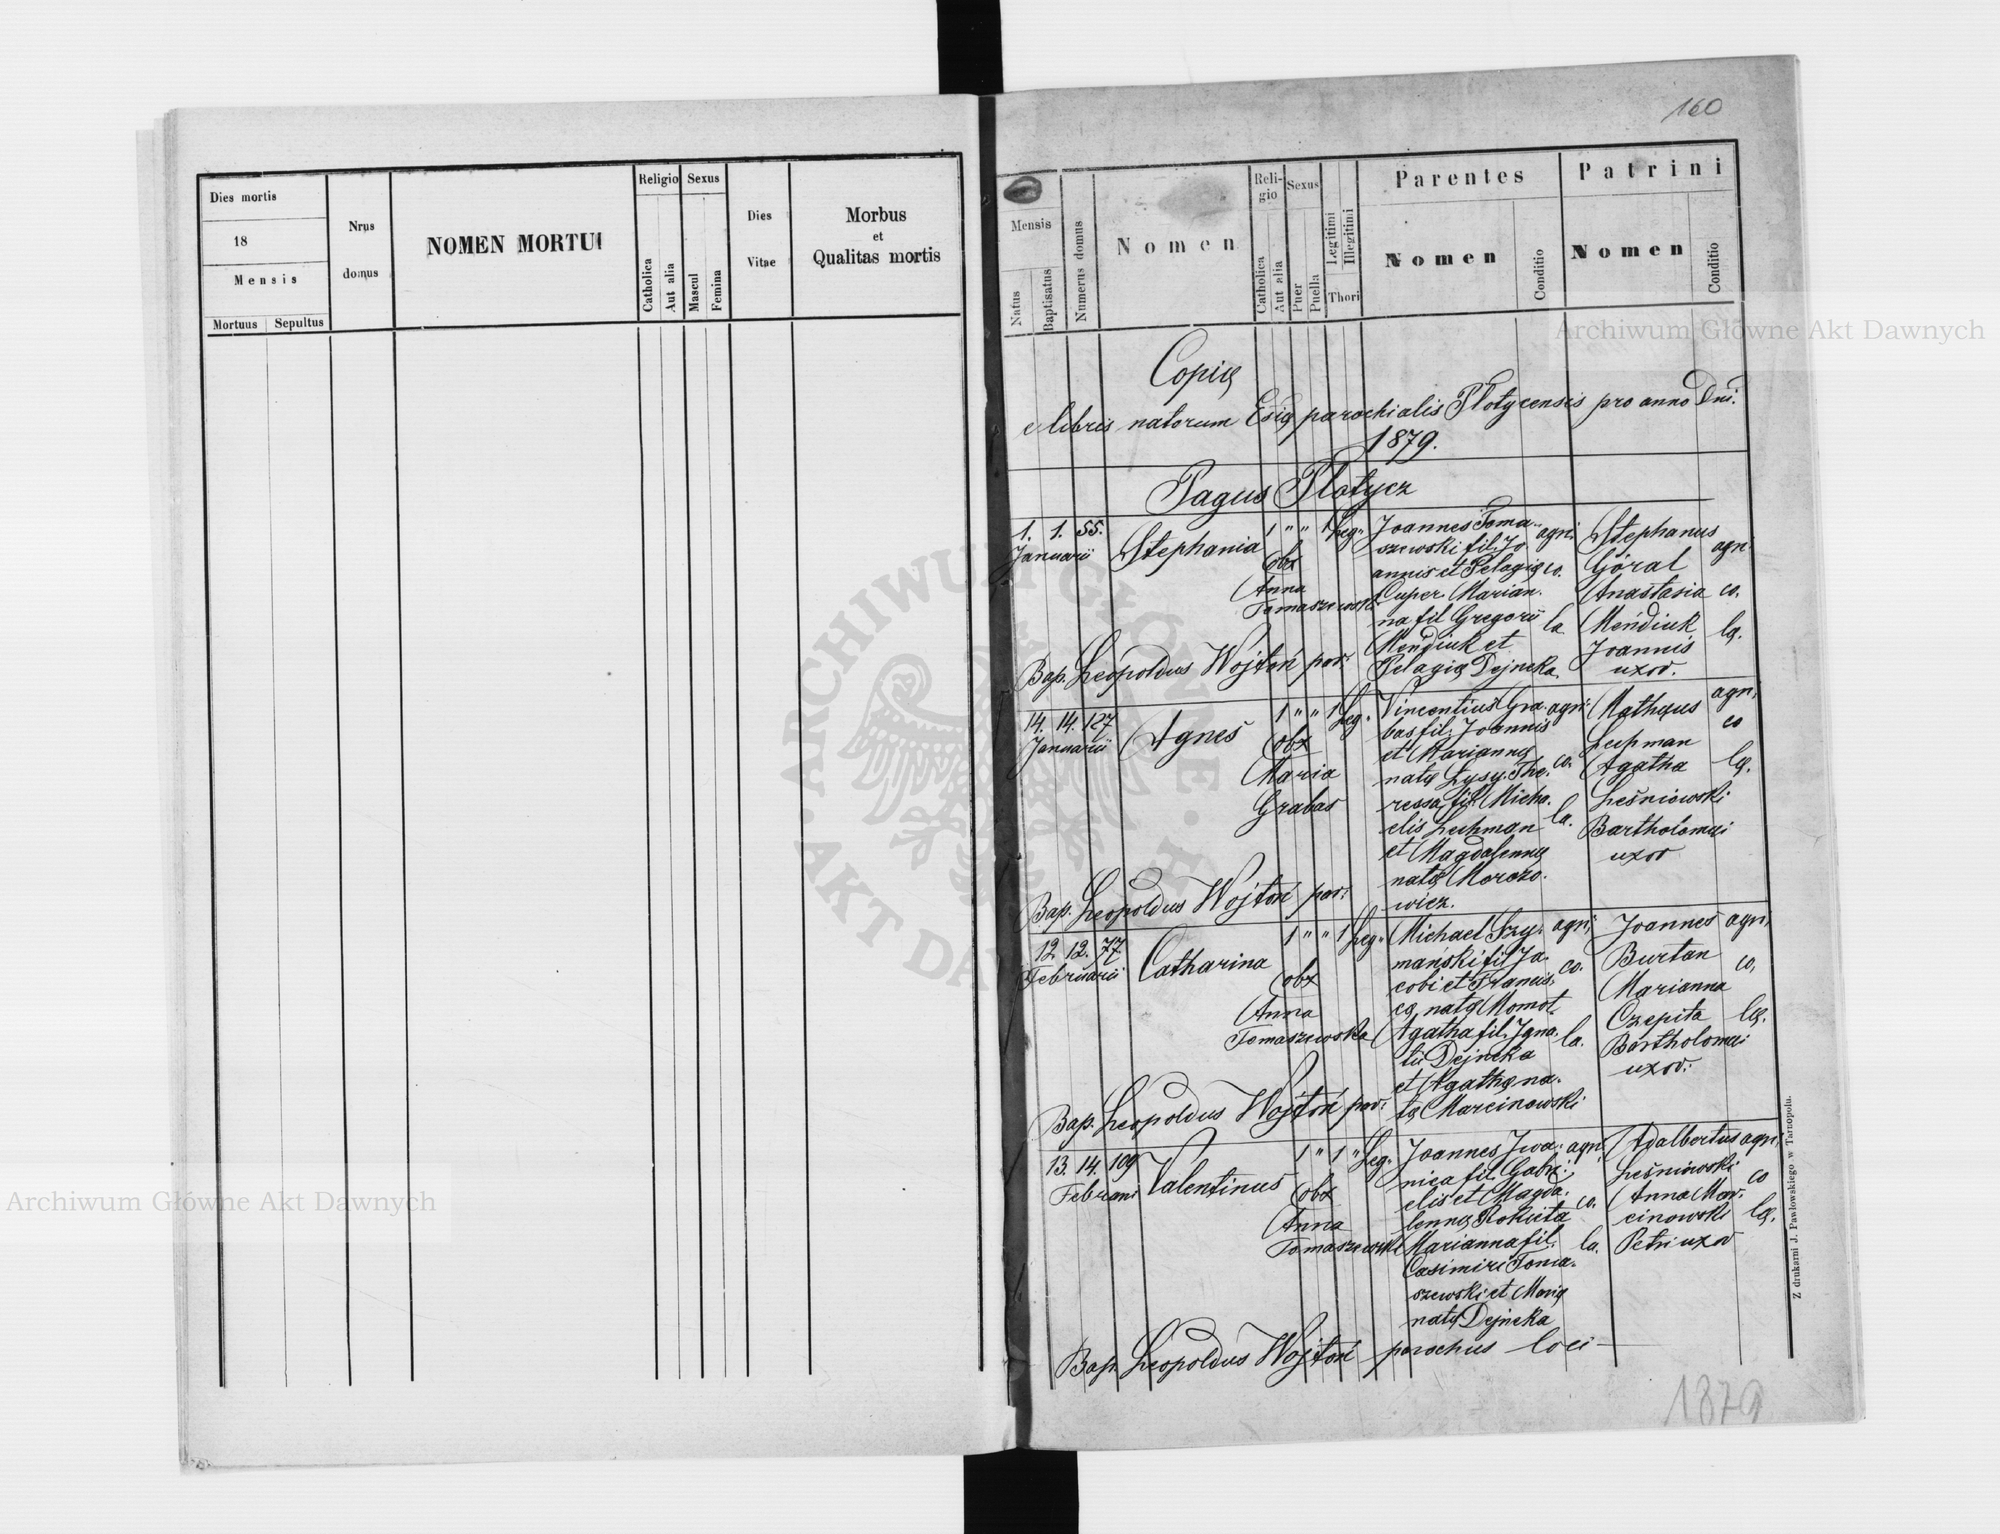 160
Dies mortis
18
Mensis
Mortuus
Sepultus
Nrus
domus
NOMEN MORTUI
Religio
Catholica
Aut alia
Sexus
Mascul
Femina
Dies
Vitae
Morbus
et
Qualitas mortis
Mensis
Natus
Baptisatus
Numerus domus
Nomen
Reli-
gio
Catholica
Aut alia
Sexus
Puer
Puella
Legitimi
Illegitimi
Thori
Parentes
Nomen
Conditio
Patrini
Nomen
Conditio
Archiwum Główne Akt Dawnych
Copię
e libris natorum Esię parochialis Płotycensis pro anno Dni.
1879.
Pagus Płotycz
1. 1. 55.
Januarii
Stephania
1 " " 1 Leg.
obx
Anna
Tomaszewski
Joannes Toma-
szewski fil. Jo
annis et Pelagię
Cuper Marian.
na fil Gregorii
Meńdiuk et
Pelagię Dejneka.
agri.
co.
la
Stephanus
Góral
Anastasia
Meńdiuk
Joannis
uxor.
agri.
co.
lę.
Bap. Leopoldus Wojtoń par:
14. 14. 127
Januarii
Agnes
1 " " 1 Leg.
obx
Maria
Grabas
Vincentius Gra-
bas fil. Joannis
et Mariannę
natę Łysy. The-
ressa fil. Micha-
elis Lechman
et Magdalennę
natę Morozo-
wicz.
agri.
co.
la.
Matheus
Lechman
Agatha
Leśniowski
Bartholomęi
uxor
agri.
co
lę.
Bap. Leopoldus Wojtoń par:
12. 12. 77
Februarii
Catharina
1 " " 1 Leg.
obx
Anna
Tomaszewska
Michael Szy-
mański fil Ja-
cobi et Francis-
cę natę Momot
Agatha fil. Igna-
tii Dejneka
et Agathę na-
tę Marcinowski
agri.
co.
la.
Joannes
Burtan
Marianna
Czepita
Bartholomęi
uxor.
agri,
co,
lę.
Bap. Leopoldus Wojtoń par:
13. 14. 109
Februarii
Valentinus
1 " 1 " Leg.
obx
Anna
Tomaszewski
Joannes Iwa-
nica fil. Gabri-
elis et Magda-
lennę Rokieta
Marianna fil.
Casimiri Toma-
szewski et Marię
natę Dejneka
agri.
co.
la.
Adalbertus
Leśniowski
Anna Mar-
cinowski
Petri uxor
agri,
co
lę.
Bap. Leopoldus Wojtoń parochus loci
Z drukarni J. Pawłowskiego w Tarnopolu.
1879
Archiwum Główne Akt Dawnych
ARCHIWUM GŁÓWNE
AKT DAWNYCH